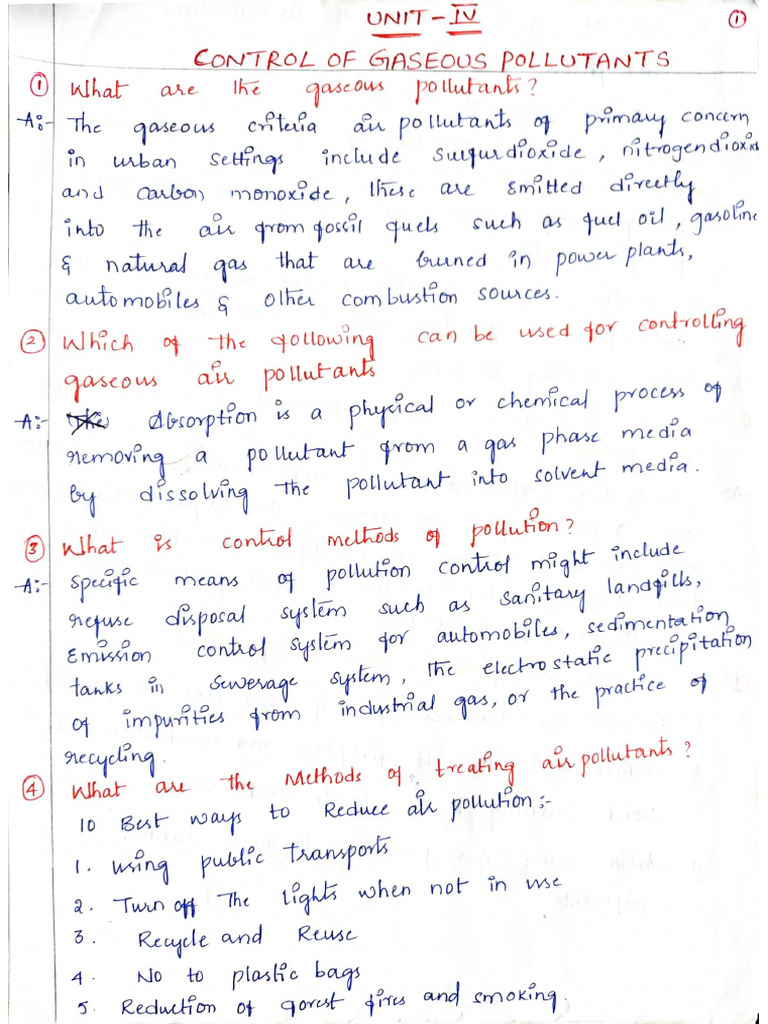 UNIT - IV
①
CONTROL OF GASEOUS POLLUTANTS
① What are the gaseous pollutants?
A:- The gaseous criteria air pollutants of primary concern
in urban settings include sulfurdioxide, nitrogendioxid
and carbon monoxide, these are emitted directly
into the air from fossil fuels such as fuel oil, gasoline
& natural gas that are burned in power plants,
automobiles & other combustion sources.
② Which of the following can be used for controlling
gaseous air pollutants
A:- Absorption is a physical or chemical process of
removing a pollutant from a gas phase media
by dissolving the pollutant into solvent media.
③ What is control methods of pollution?
A:- Specific means of pollution control might include
refuse disposal system such as sanitary landfills,
Emission control system for automobiles, sedimentation
tanks in sewerage system, the electrostatic precipitation
of impurities from industrial gas, or the practice of
recycling.
④ What are the Methods of treating air pollutants?
10 Best ways to Reduce air pollution:-
1. using public transports
2. Turn off The lights when not in use
3. Recycle and Reuse
4. No to plastic bags
5. Reduction of forest fires and smoking.